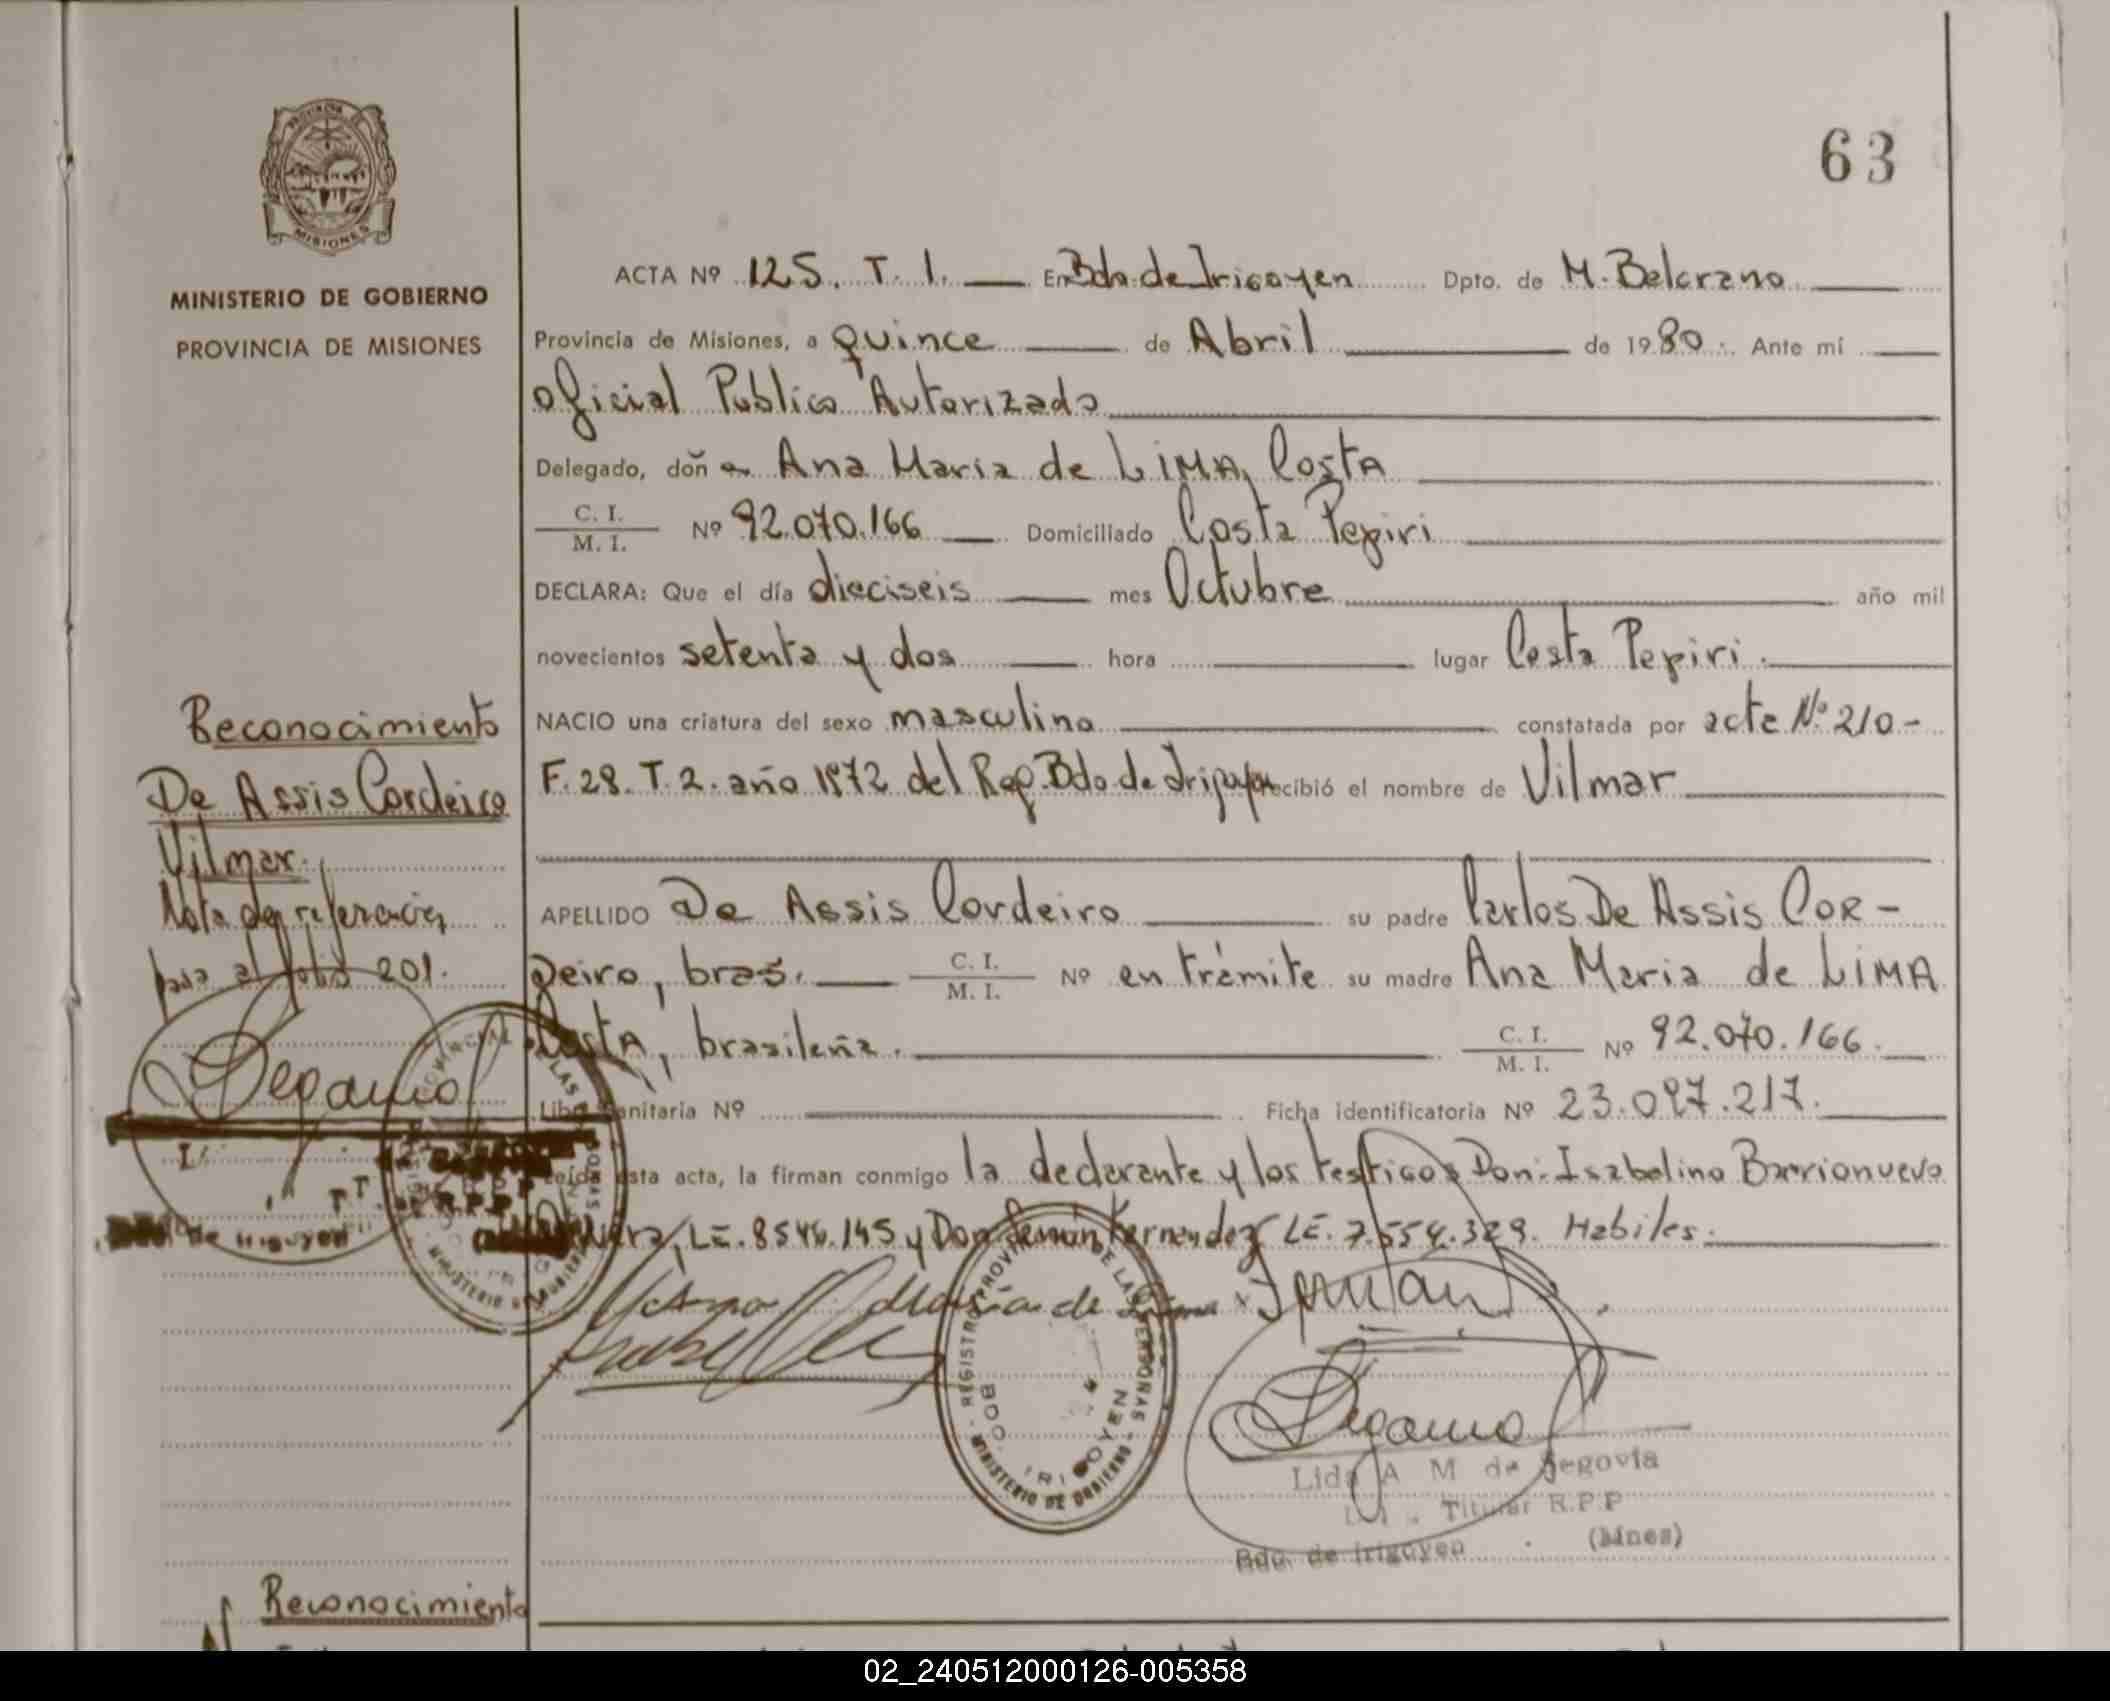 PROVINCIA DE
MISIONES
MINISTERIO DE GOBIERNO
PROVINCIA DE MISIONES
63
ACTA Nº 125. T. 1. En Bdo. de Irigoyen Dpto. de M. Belgrano
Provincia de Misiones, a quince de Abril de 1980. Ante mí
oficial Publico Autorizado
Delegado, doña Ana Maria de LIMA, Costa
C. I.
M. I. Nº 92.070.166 Domiciliado Costa Pepiri
DECLARA: Que el día dieciseis mes Octubre año mil
novecientos setenta y dos hora lugar Costa Pepiri.
NACIO una criatura del sexo masculino constatada por acte Nº 210-
F. 28. T. 2. año 1972 del Reg. Bdo de Irigoyen recibió el nombre de Vilmar
APELLIDO De Assis Cordeiro su padre Carlos De Assis COR-
Deiro, bras. C. I.
M. I. Nº en trámite su madre Ana Maria de LIMA
Costa, brasileña. C. I.
M. I. Nº 92.070.166.
Libr. Sanitaria Nº Ficha identificatoria Nº 23.097.217.
Leída esta acta, la firman conmigo la declarante y los testigos Don. Isabelino Barrionuevo
LE. 8546.145 y Don German Fernandez LE. 7.554.329. Habiles.
Reconocimiento
De Assis Cordeiro
Vilmar.
Nota de referencia
pasa al folio 201.
de Irigoyen
Maria de Lima
German
REGISTRO PROVINCIAL DE LAS PERSONAS
BDO. IRIGOYEN
MINISTERIO DE GOBIERNO
Lida A M de Segovia
Titular R.P.P
Bdo. de Irigoyen (Mnes)
Reconocimiento
02_240512000126-005358